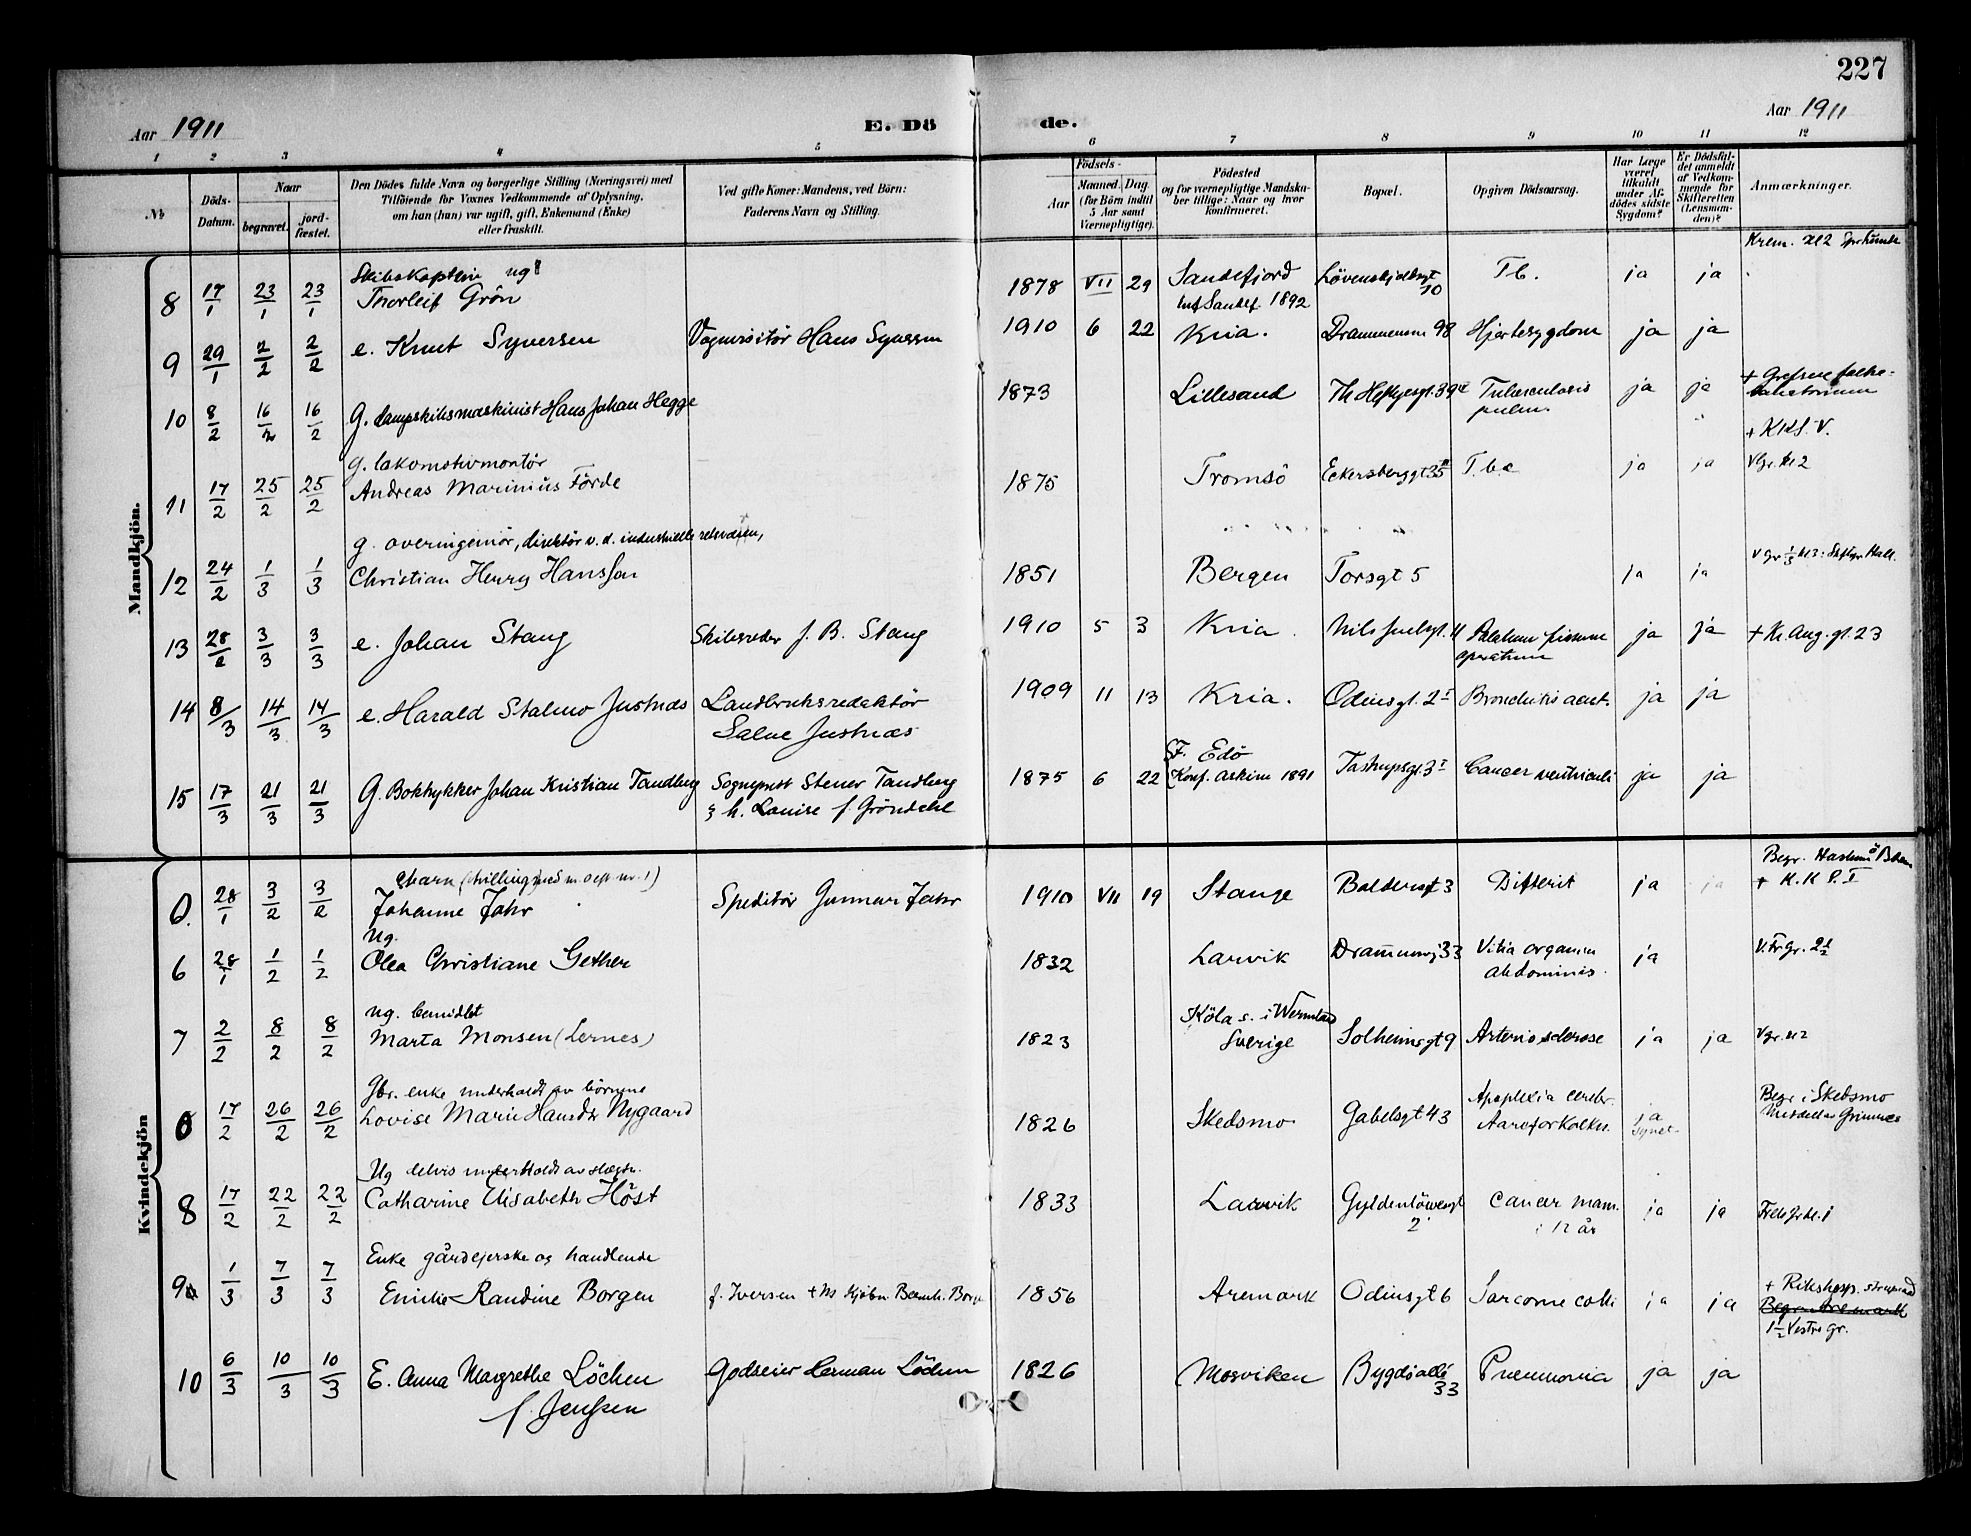 227
Aar 1911
E. Dö de.
Aar 1911
1 2 3 4 5 6 7 8 9 10 11 12
No
Döds-Datum.
Naar
begravet.
jord-fæstet.
Den Dödes fulde Navn og borgerlige Stilling (Næringsvei) med
Tilföiende for Voxnes Vedkommende af Oplysning,
om han (hun) var ugift, gift, Enkemand (Enke)
eller fraskilt.
Ved gifte Koner: Mandens, ved Börn:
Faderens Navn og Stilling.
Födsels-
Aar
Maaned. Dag.
(for Börn indtil
5 Aar samt
Værnepligtige).
Födested
og for værnepligtige Mandskaber tillige: Naar og hvor
konfirmeret.
Bopæl.
Opgiven Dödsaarsag.
Har Læge
været
tilkaldt
under Afdödes sidste
Sygdom?
Er Dödsfaldet anmeldt
af Vedkommende for
Skifteretten
(Lensmanden)?
Anmærkninger.
Mandkjön.
Krem. kl 2
Skibskaptein ug
8 17/1 23/1 23/1 Thorleif Grön 1878 VII 29 Sandefjord Lövenskjoldsgt 10 Tb. ja ja
Sandef. 1892
9 29/1 2/2 2/2 e. Knut Syversen Vognvisitör Hans Syversen 1910 6 22 Kria. Drammensv 98 Hjertesygdom ja ja
10 8/2 16/2 16/2 G. dampskibsmaskinist Hans Johan Hegge 1873 Lillesand Th Heftyesgt. 39 Tuberculosis pulm. ja ja + Grefsens folkesanatorium
+ KKS. V.
g. lokomotivmontör
11 17/2 25/2 25/2 Andreas Marinius Förde 1875 Tromsö Eckersbergsgt 35 Tbc ja ja Vgr. kl 2
g. overingeniör, direktör v. d. industrielle retsvæsen,
12 24/2 1/3 1/3 Christian Henry Hansson 1851 Bergen Torsgt 5 ja ja
13 28/2 3/3 3/3 e. Johan Stang Skibsreder J. B. Stang 1910 5 3 Kria. Nils Juelsgt. 11 Palatum fissum operatum ja ja + Kr. Aug. gt. 23
14 8/3 14/3 14/3 e. Harald Stalmo Justnæs Landbruksredaktör
Salve Justnæs 1909 11 13 Kria. Odinsgt. 2 I Bronchitis acut. ja ja
15 17/3 21/3 21/3 G. Boktrykker Johan Kristian Tandberg Sogneprest Stener Tandberg
& h. Louise f. Gröndahl 1875 6 22 F. Edö
Konf. Askim 1891 Tastrupsgt 3 I Cancer ventriculi ja ja
Kvindekjön
0. 28/1 3/2 3/2 Johanne Jahr Speditör Gunnar Jahr 1910 VII 19 Stange Baldersgt 3 Difterit ja ja + K. K P. I
Ug.
6 28/1 1/2 1/2 Olea Christiane Gether 1832 Larvik Drammensv 33 Vitia organum abdominis. ja
ug. bemidlet
7 2/2 8/2 8/2 Marta Monsen (Lernes) 1823 Köla s. i Wermland
Sverige Solheimsgt 9 Arteriosclerose ja ja Vgr. kl 2
Gbr. enke underholdt av börnene
0 17/2 26/2 26/2 Lovise Marie Hansdtr Nygaard 1826 Skedsmo Gabelsgt 43 Apoplexia cerebr.
Aareforkalkn. ja
synet Begr i Skedsmo
Ug delvis underholdt av slægtn.
8 17/2 22/2 22/2 Catharine Elisabeth Höst 1833 Laurvik Gyldenlövesgt 2 Cancer mam.
i 12 år ja ja
Enke gårdejerske og handlende
9 1/3 7/3 7/3 Emilie Randine Borgen f. Iversen + m Kjöbm. Bernh. Borgen 1856 Aremark Odinsgt 6 Sarcome colli ja ja + Rikshosp.
Begr. Aremark
1 1/2 Vestre gr.
10 6/3 10/3 10/3 E. Anna Margrethe Löchen
f. Jenssen Godseier Herman Löchen 1826 Mosviken Bygdö allé 33 Pneumonia ja ja